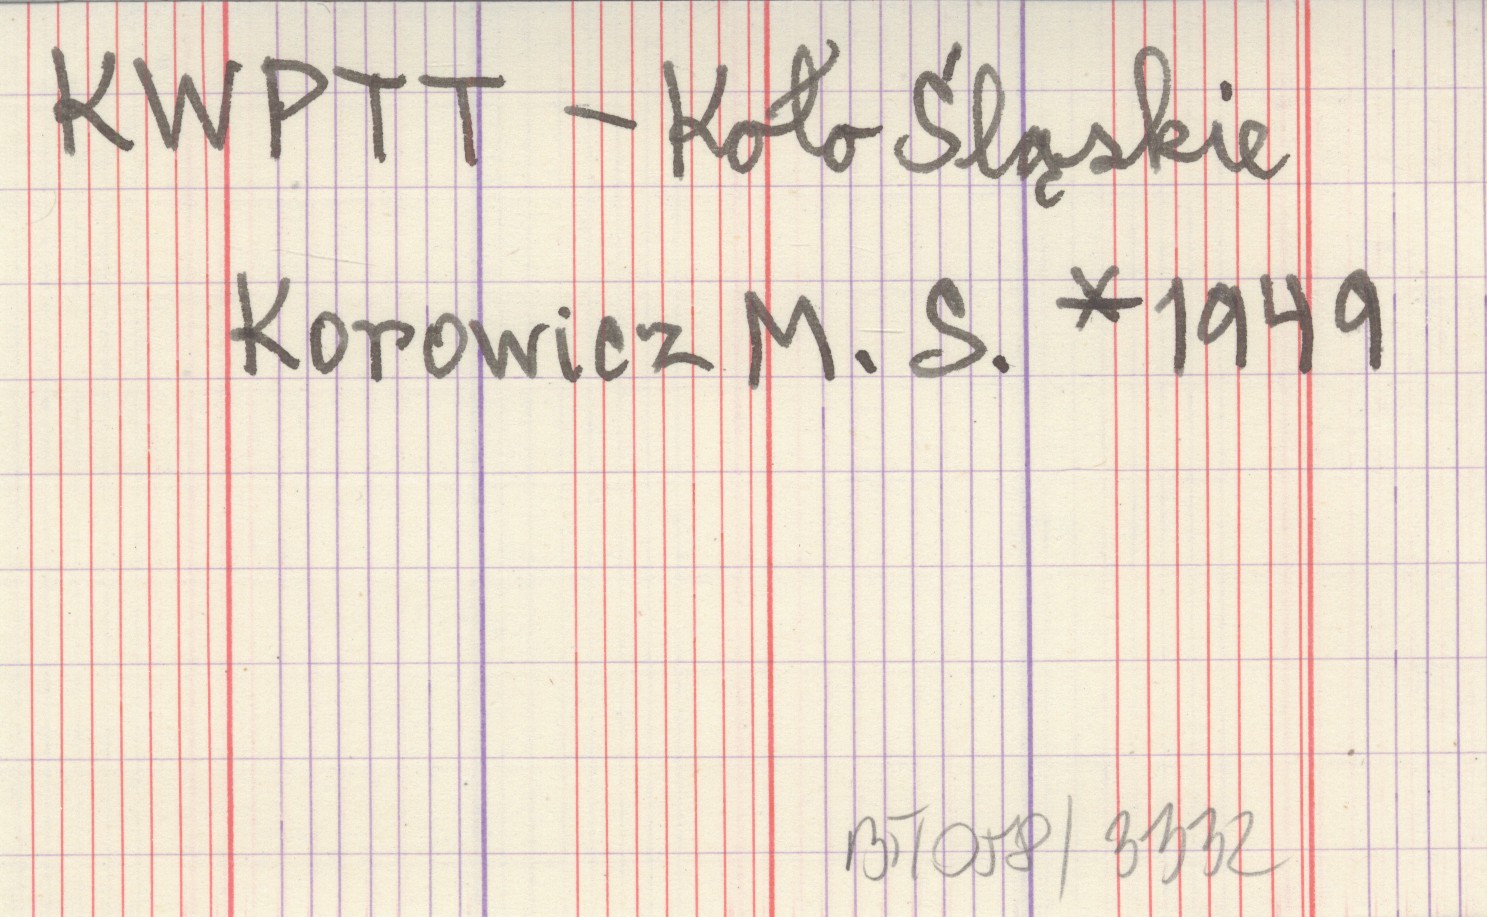 KWPTT – Koło Śląskie
Korowicz M. S. * 1949
BT/058/3332